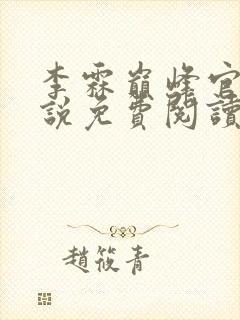 李霖巔峰官
說免費閱讀
趙筱青